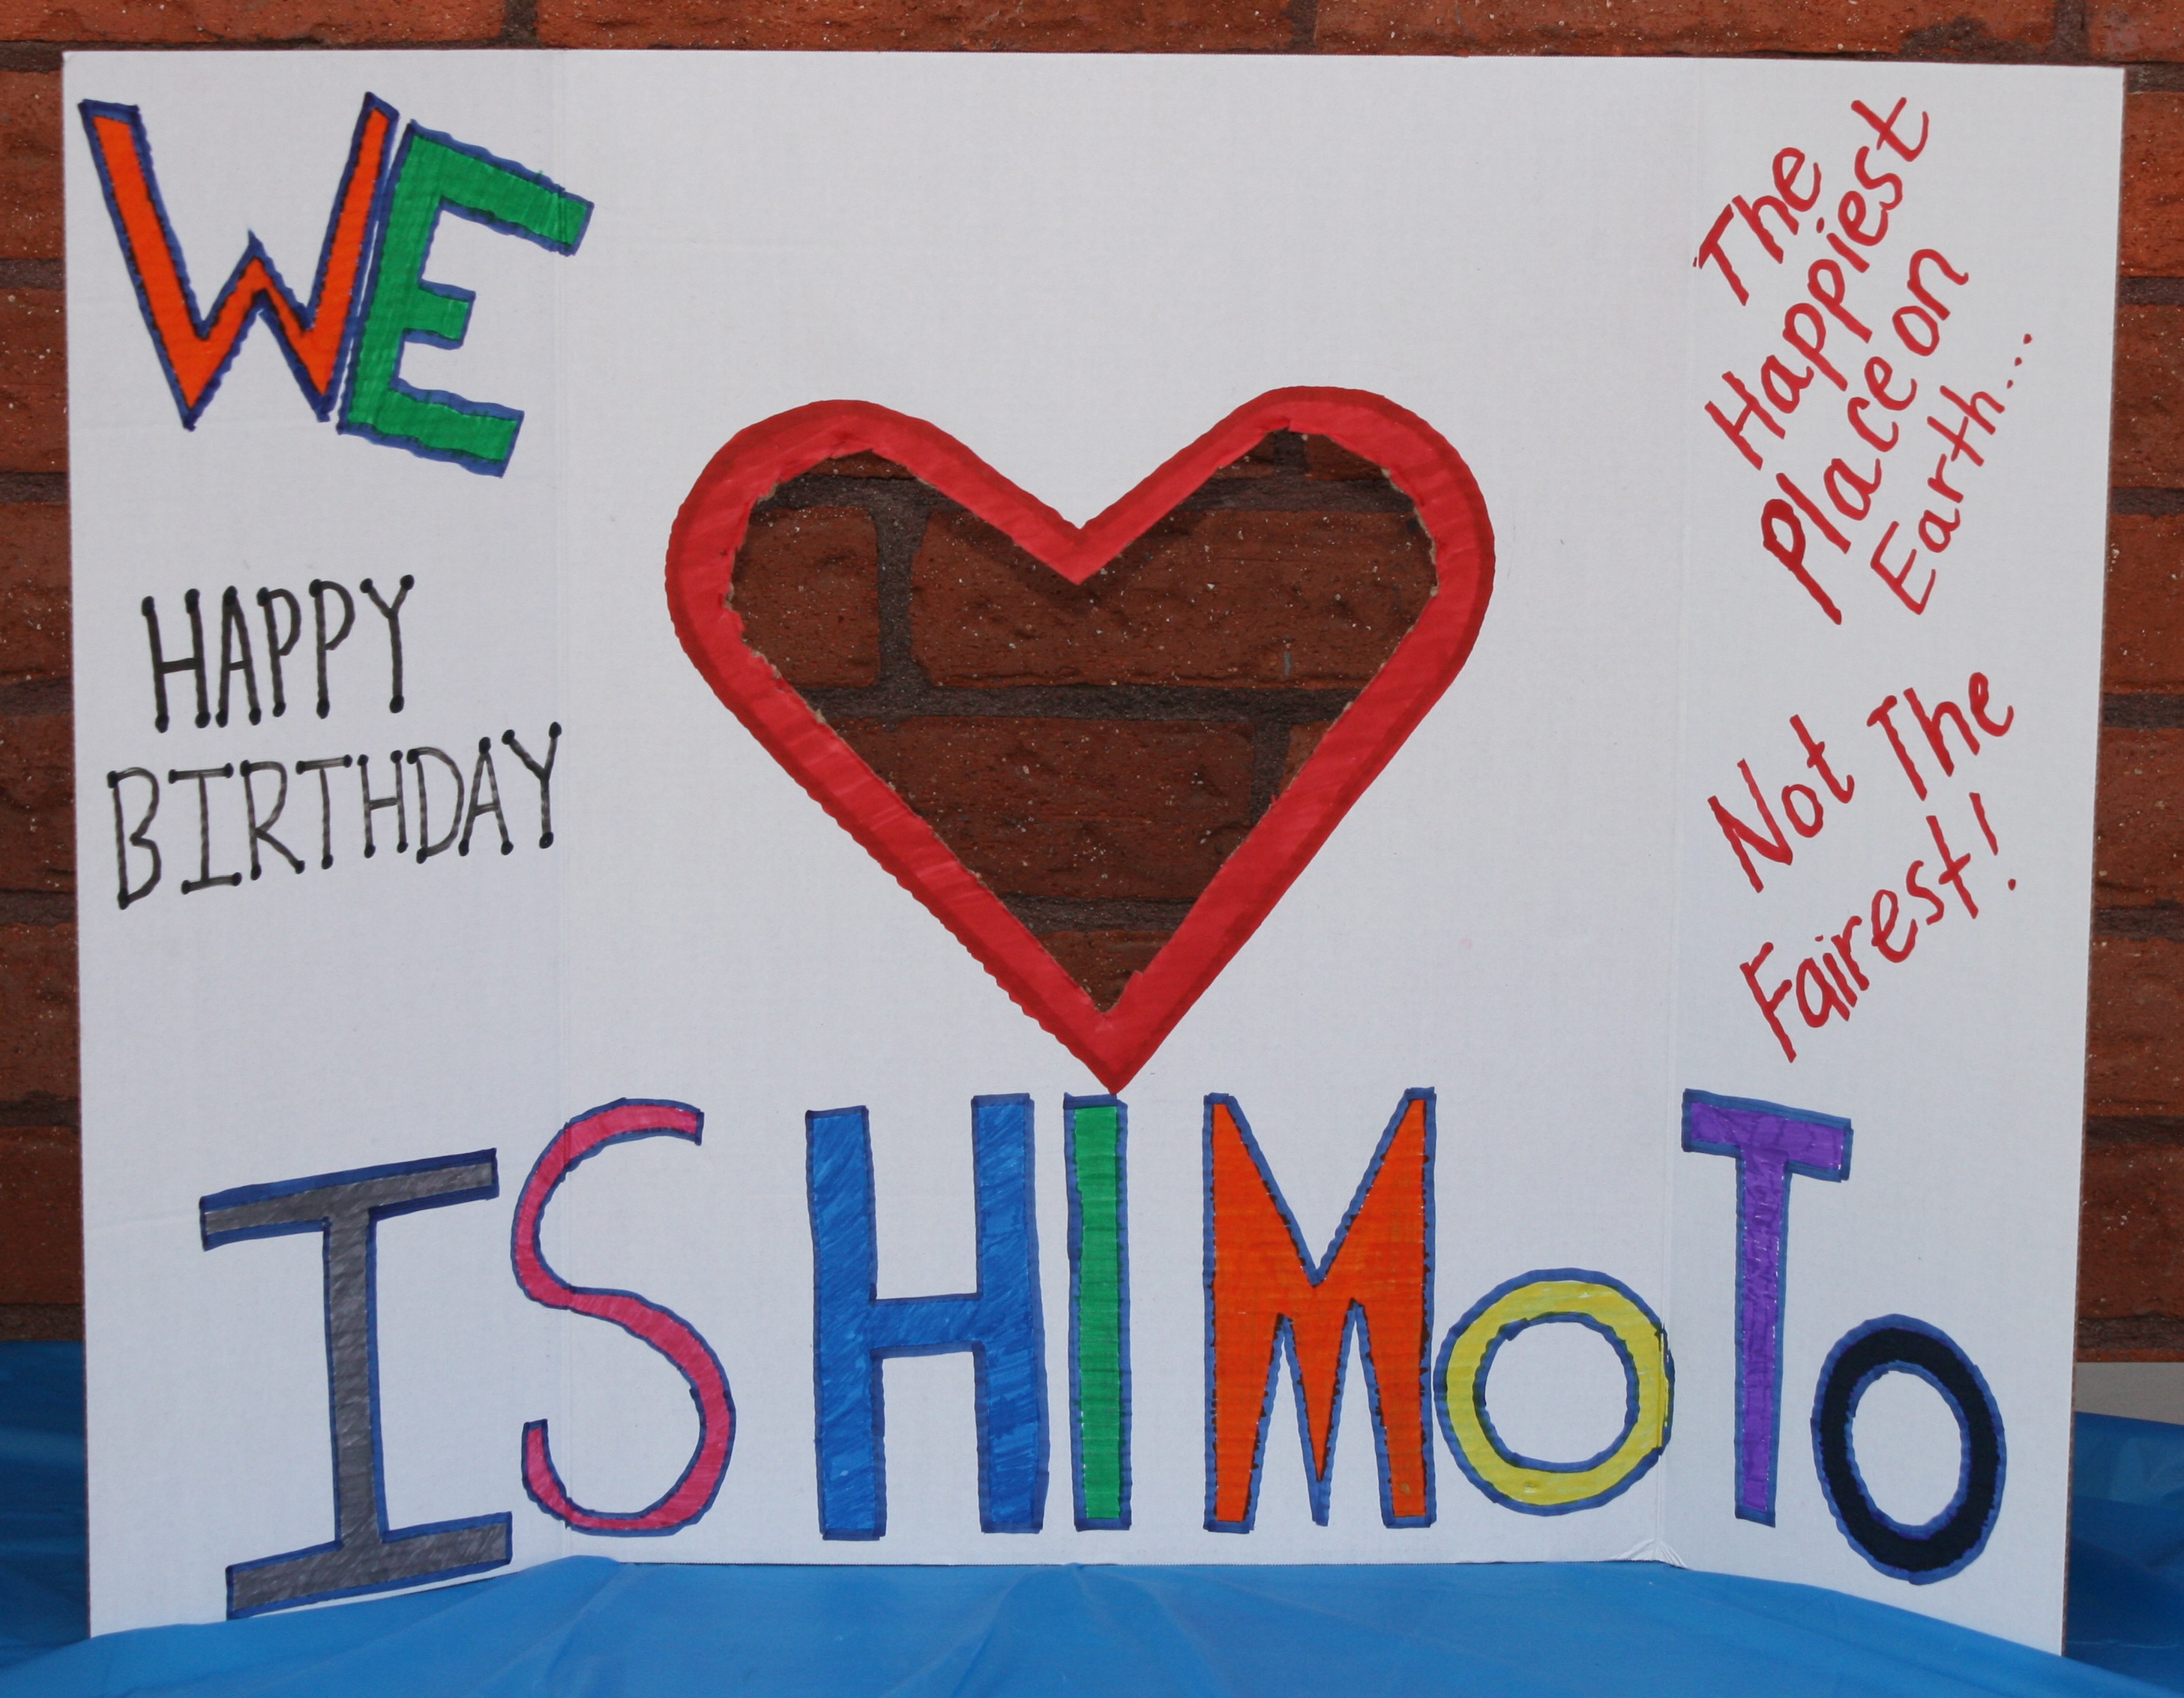 WE
HAPPY
BIRTHDAY
The
Happiest
Place on
Earth...
Not The
Fairest!
ISHIMOTO